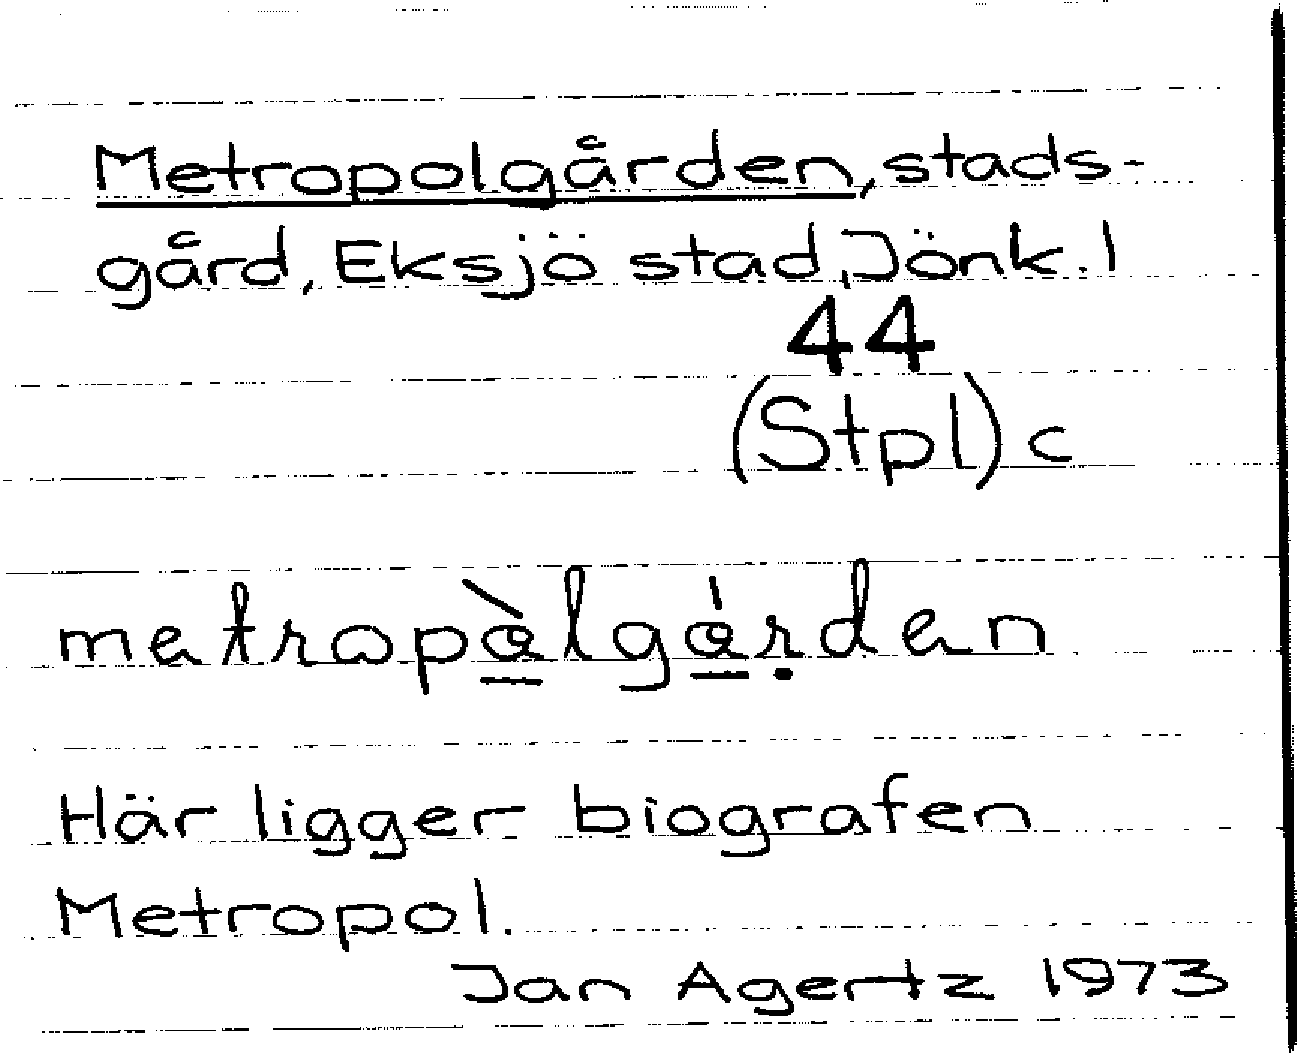 Metropolgården, stads-
gård, Eksjö stad, Jönk. l
44
(Stpl) c
metropålgǻṛden
Här ligger biografen
Metropol.
Jan Agertz 1973